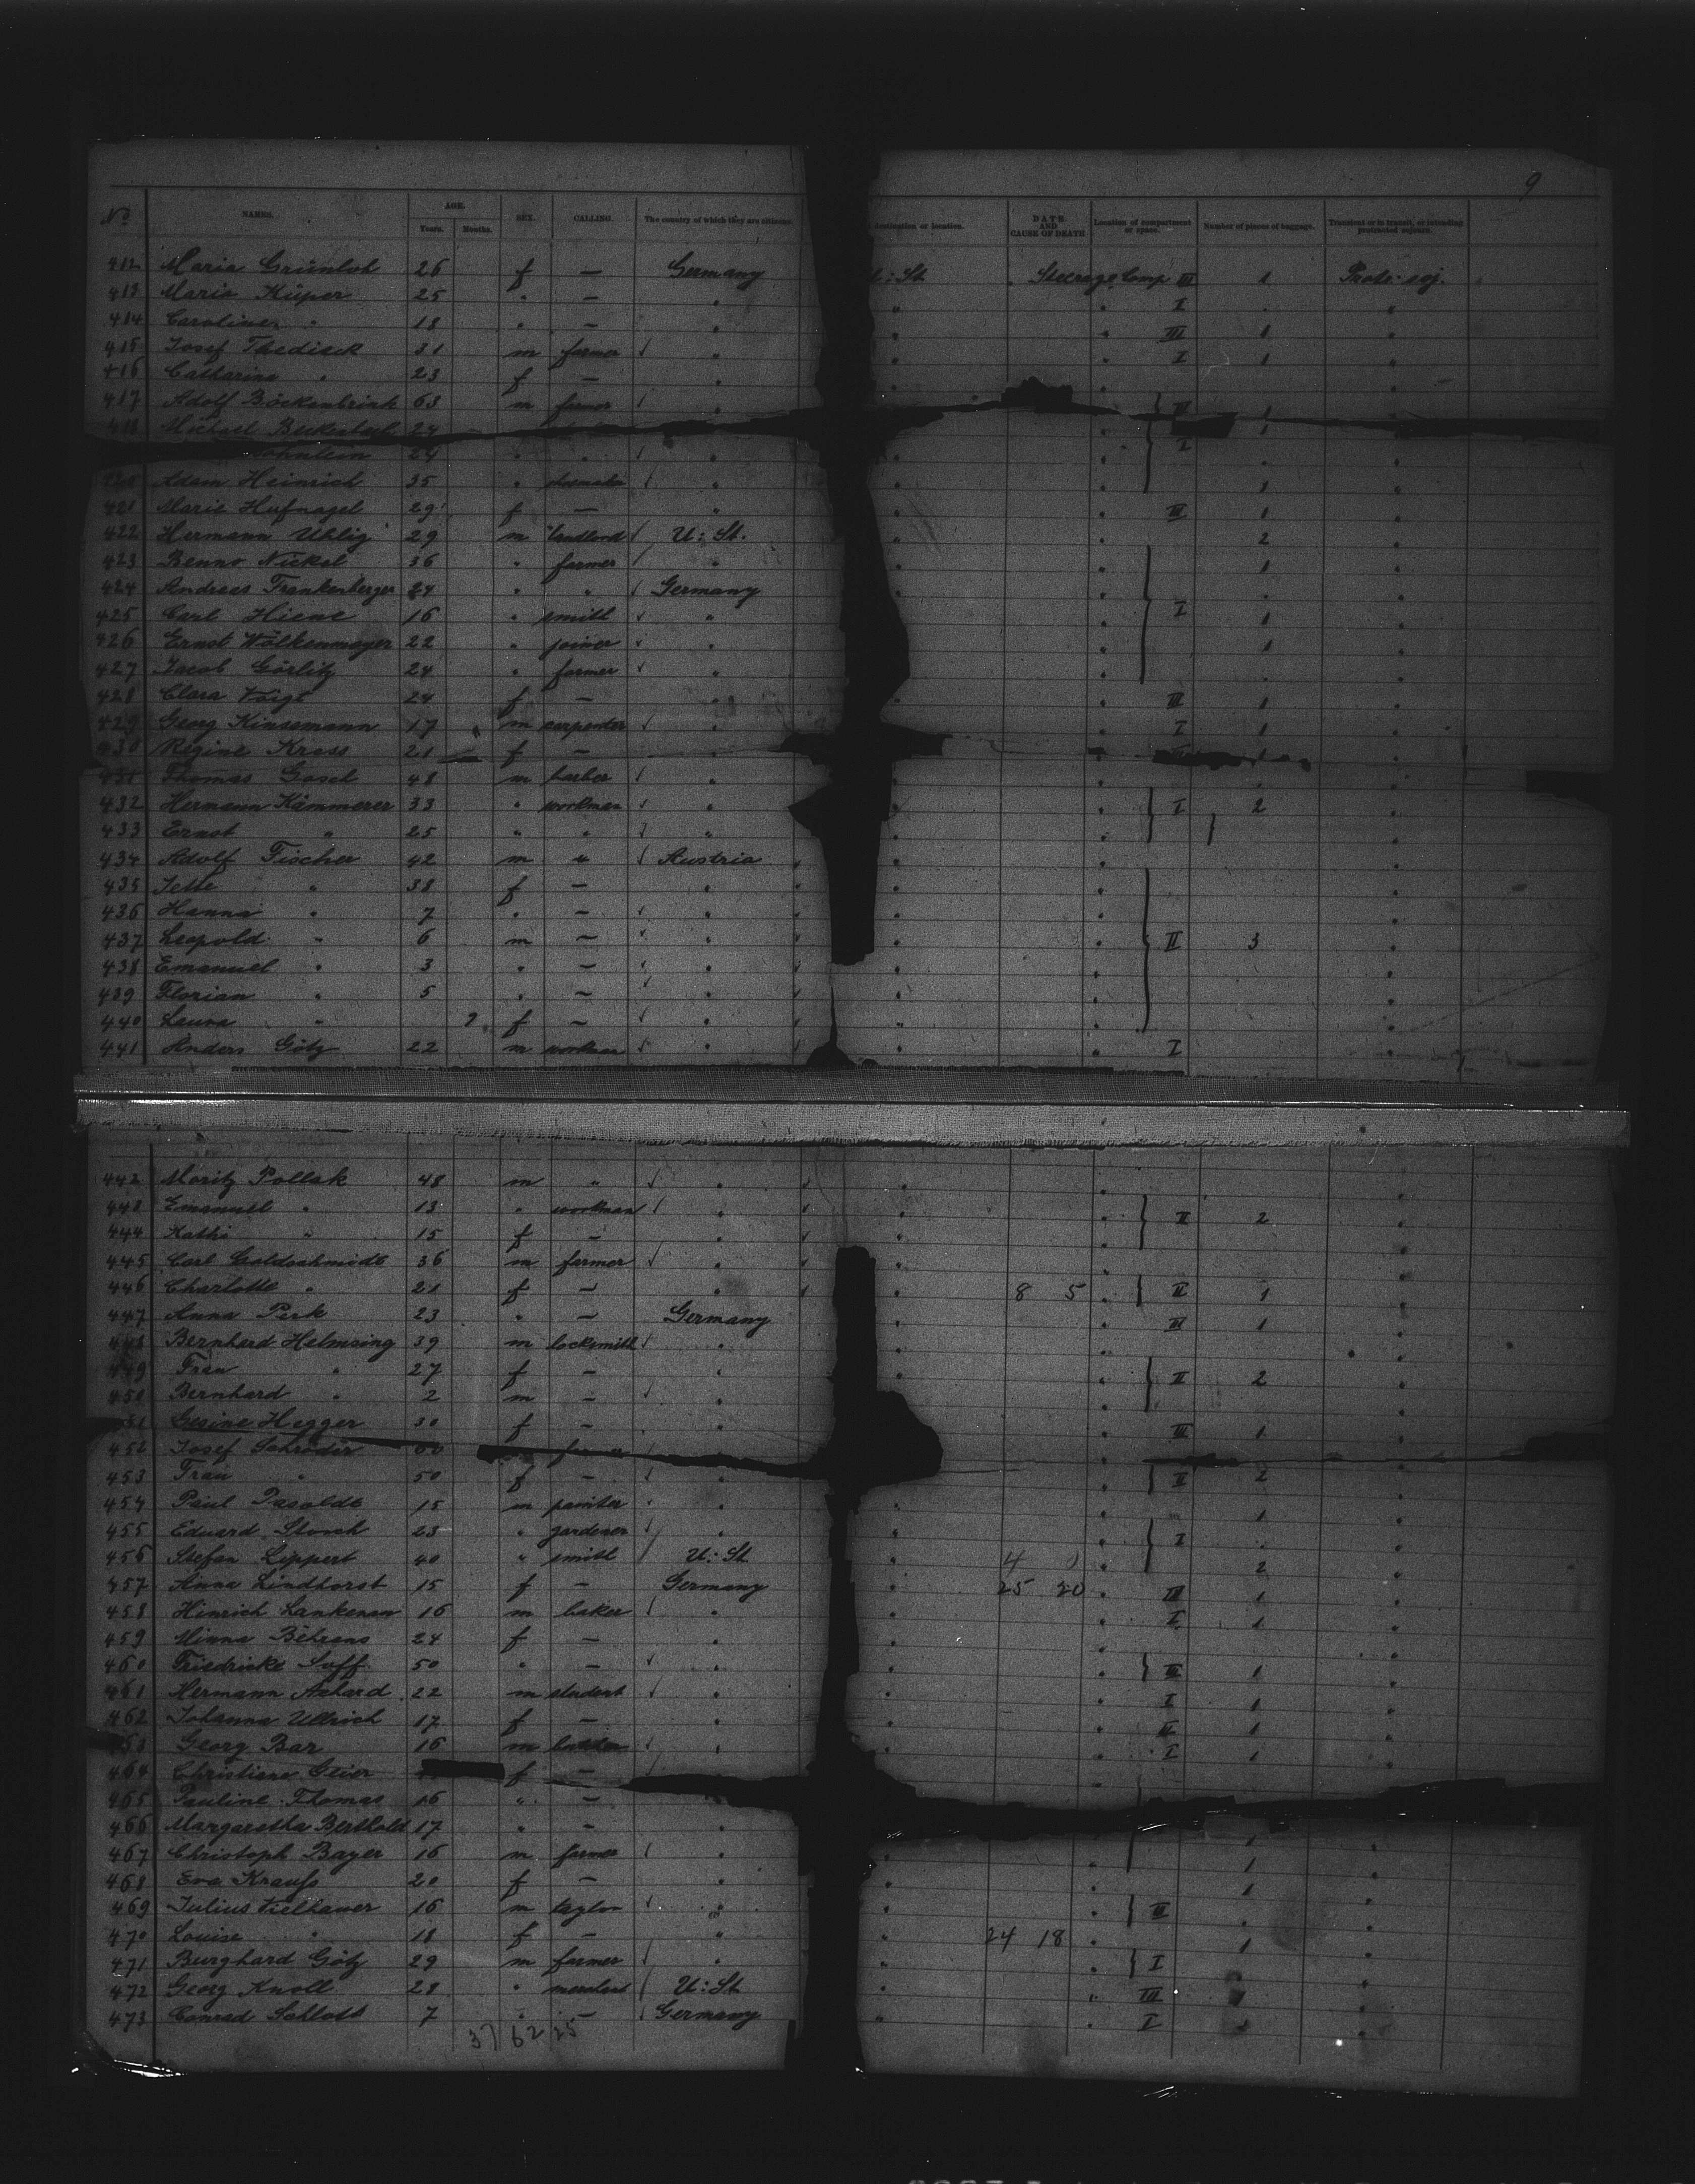 9
No NAMES. AGE. Years. Months. SEX. CALLING. The country of which they are citizens. destination or location. DATE AND CAUSE OF DEATH Location of compartment or space. Number of pieces of baggage. Transient or in transit, or intending protracted sojourn.
412 Maria Grünloh 26 f — Germany U: St. Steerage Comp III 1 Protr. soj.
413 Maria Küper 25 " — " " " I . "
414 Caroline " 18 " — " " " III 1 "
415 Josef Thedieck 31 m farmer √ " " " I 1 "
416 Catharina " 23 f — " " "
417 Adolf Böckenbrink 63 m farmer √ " " 1
418 Michael 24 1
24 " " √ " " " I "
Adam Heinrich 35 " √ " " " 1 "
421 Marie Hufnagel 29 f — " " " III 1 "
422 Hermann Uhlig 29 m landlord √ U: St. " " 2 "
423 Benno Nickel 36 " farmer √ " " " 1 "
424 Andreas Frankenberger 24 " " √ Germany " " . "
425 Carl Hiene 16 " smith √ " " " I 1 "
426 Ernst Wölkenmayer 22 " joiner √ " " " 1 "
427 Jacob Görlitz 24 " farmer √ " " " "
428 Clara Voigt 24 f — " " " III 1 "
429 Georg Kinsemann 17 m carpenter √ " " " I 1 "
430 Regine Kress 21 f — " 1
431 Thomas Gosel 48 m barber √ " " " "
432 Hermann Kämmerer 33 " workman √ " " " I 2 "
433 Ernst " 25 " " √ " " " "
434 Adolf Fischer 42 m " √ Austria " " "
435 Jette " 38 f — " " " "
436 Hanna " 7 " — √ " " " "
437 Leopold " 6 m — √ " " " II 3 "
438 Emanuel " 3 " — √ " " " "
439 Florian " 5 " — √ " " " "
440 Laura " f — √ " " " "
441 Anders Götz 22 m workman √ " " " I "
442 Moritz Pollak 48 m " √ " " " "
443 Emanuel " 13 " workman √ " " " II 2 "
444 Kathi " 15 f — " " " "
445 Carl Goldschmidt 36 m farmer √ " " " "
446 Charlotte " 21 f — " " 8 5 " II 1 "
447 Anna Perk 23 " — Germany " " III 1 "
448 Bernhard Helmsing 39 m locksmith √ " " " "
449 Frau " 27 f — " " " II 2 "
450 Bernhard " 2 m — √ " " " "
451 Gesine Hegger 30 f — " " III 1 "
452 Josef Schröder farmer √
453 Frau " 50 f — √ " " II 2 "
454 Paul Pasoldt 15 m painter √ " " " 1 "
455 Eduard Storch 23 " gardener √ " " " I . "
456 Stefan Lippert 40 " smith √ U: St " 4 " 2 "
457 Anna Lindhorst 15 f — Germany " 25 20 " III 1 "
458 Hinrich Lankenau 16 m baker √ " " " I 1 "
459 Minna Behrens 24 f — " " " "
460 Friedricke Suff 50 " — √ " " " III 1 "
461 Hermann 22 m student √ " " " I 1 "
462 Johanna Ullrich 17 f — " " " 1 "
463 Georg Bar 16 m √ " " " I 1 "
464 Christiane Geier f —
465 Pauline Thomas 16 " — "
466 Margaretha Berthold 17 " — " 1
467 Christoph Bayer 16 m farmer √ " " " 1 "
468 Eva Krauß 20 f — " " " 1 "
469 Julius Vielhauer 16 m taylor √ " " " III . "
470 Louise " 18 f — " " 24 18 " 1 "
471 Burghard Götz 29 m farmer √ " " " I "
472 Georg Knoll 28 " √ U: St " " III "
473 Conrad Schlott 7 " — √ Germany " " I "
37 62 25